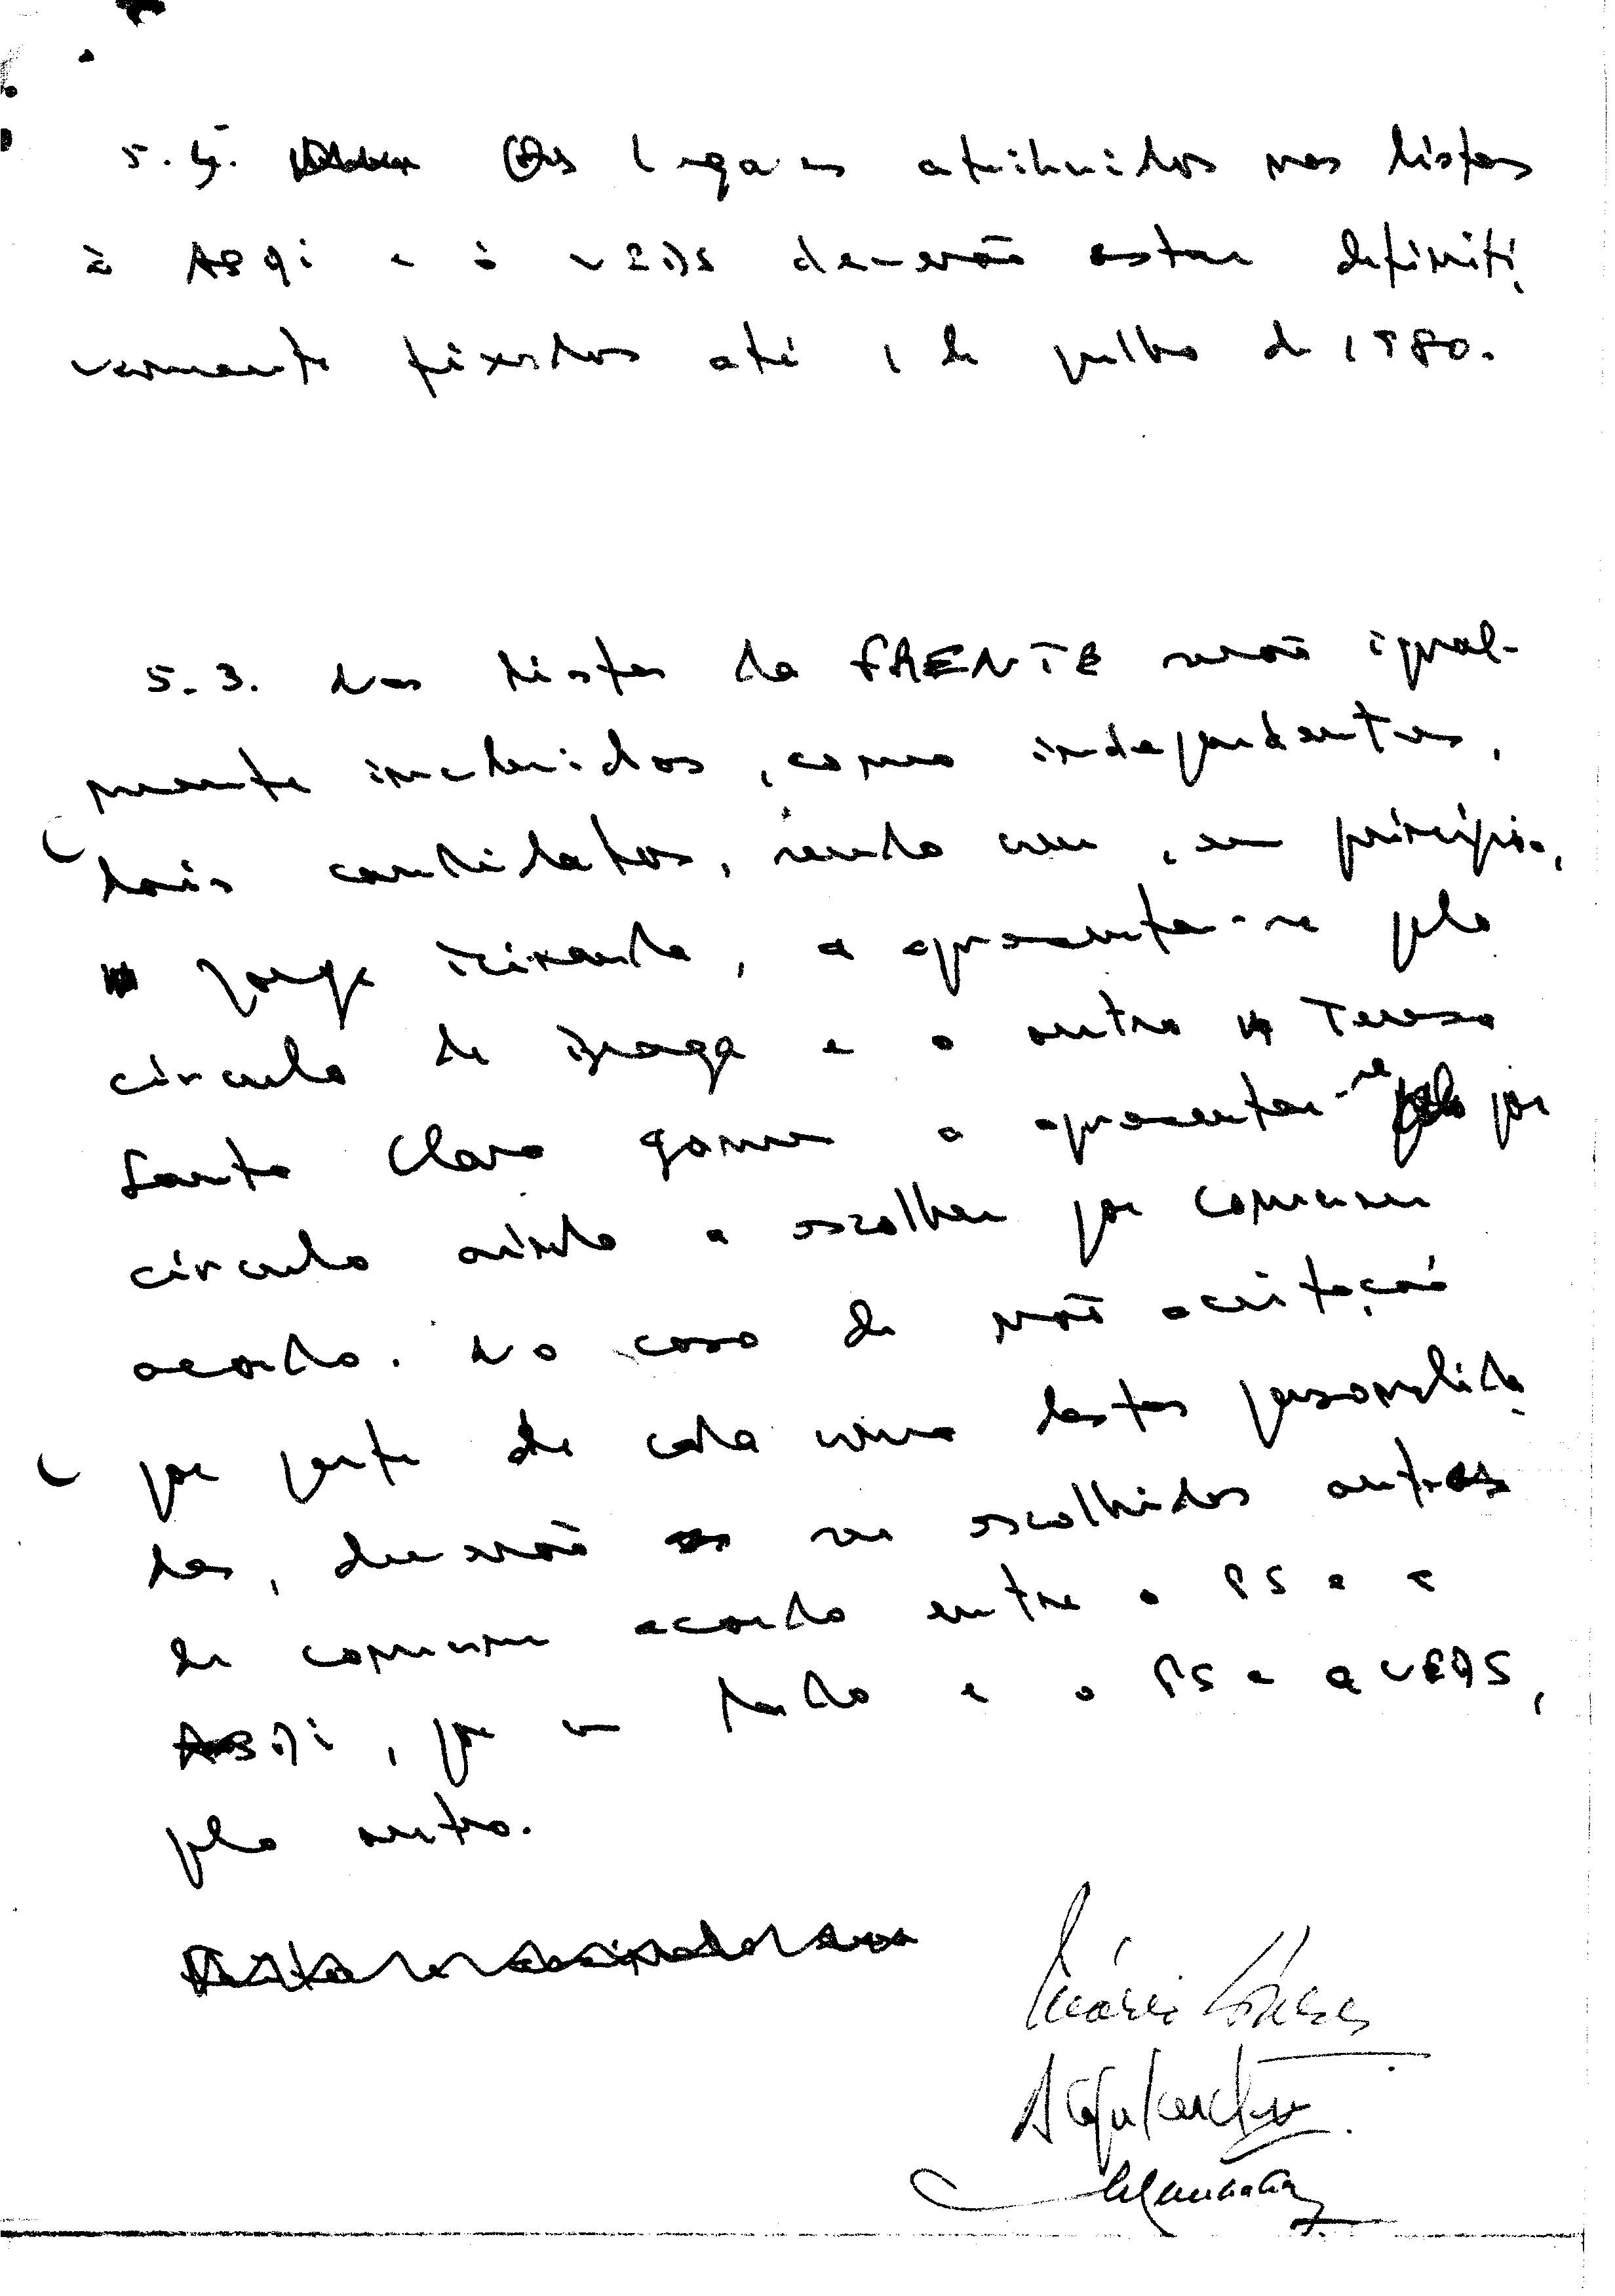 5.4. Os lugares atribuidos nas listas
à ASDI e à UEDS deverão estar definiti
vamente fixados até 1 de julho de 1980.
5.3. Nas listas da FRENTE serão igual-
mente incluidos, como independentes,
dois candidatos, sendo um, em princípio,
Jorge Miranda, a apresentar-se pelo
círculo de Braga e o outro Teresa
Santa Clara Gomes a apresentar-se por
círculo ainda a escolher por comum
acordo. No caso de não aceitação
por parte de cada uma destas personalida
des, deverão ser escolhidos outros
de comum acordo entre o PS e a
ASDI, por um lado e o PS e a UEDS,
pelo outro.
Mário Soares